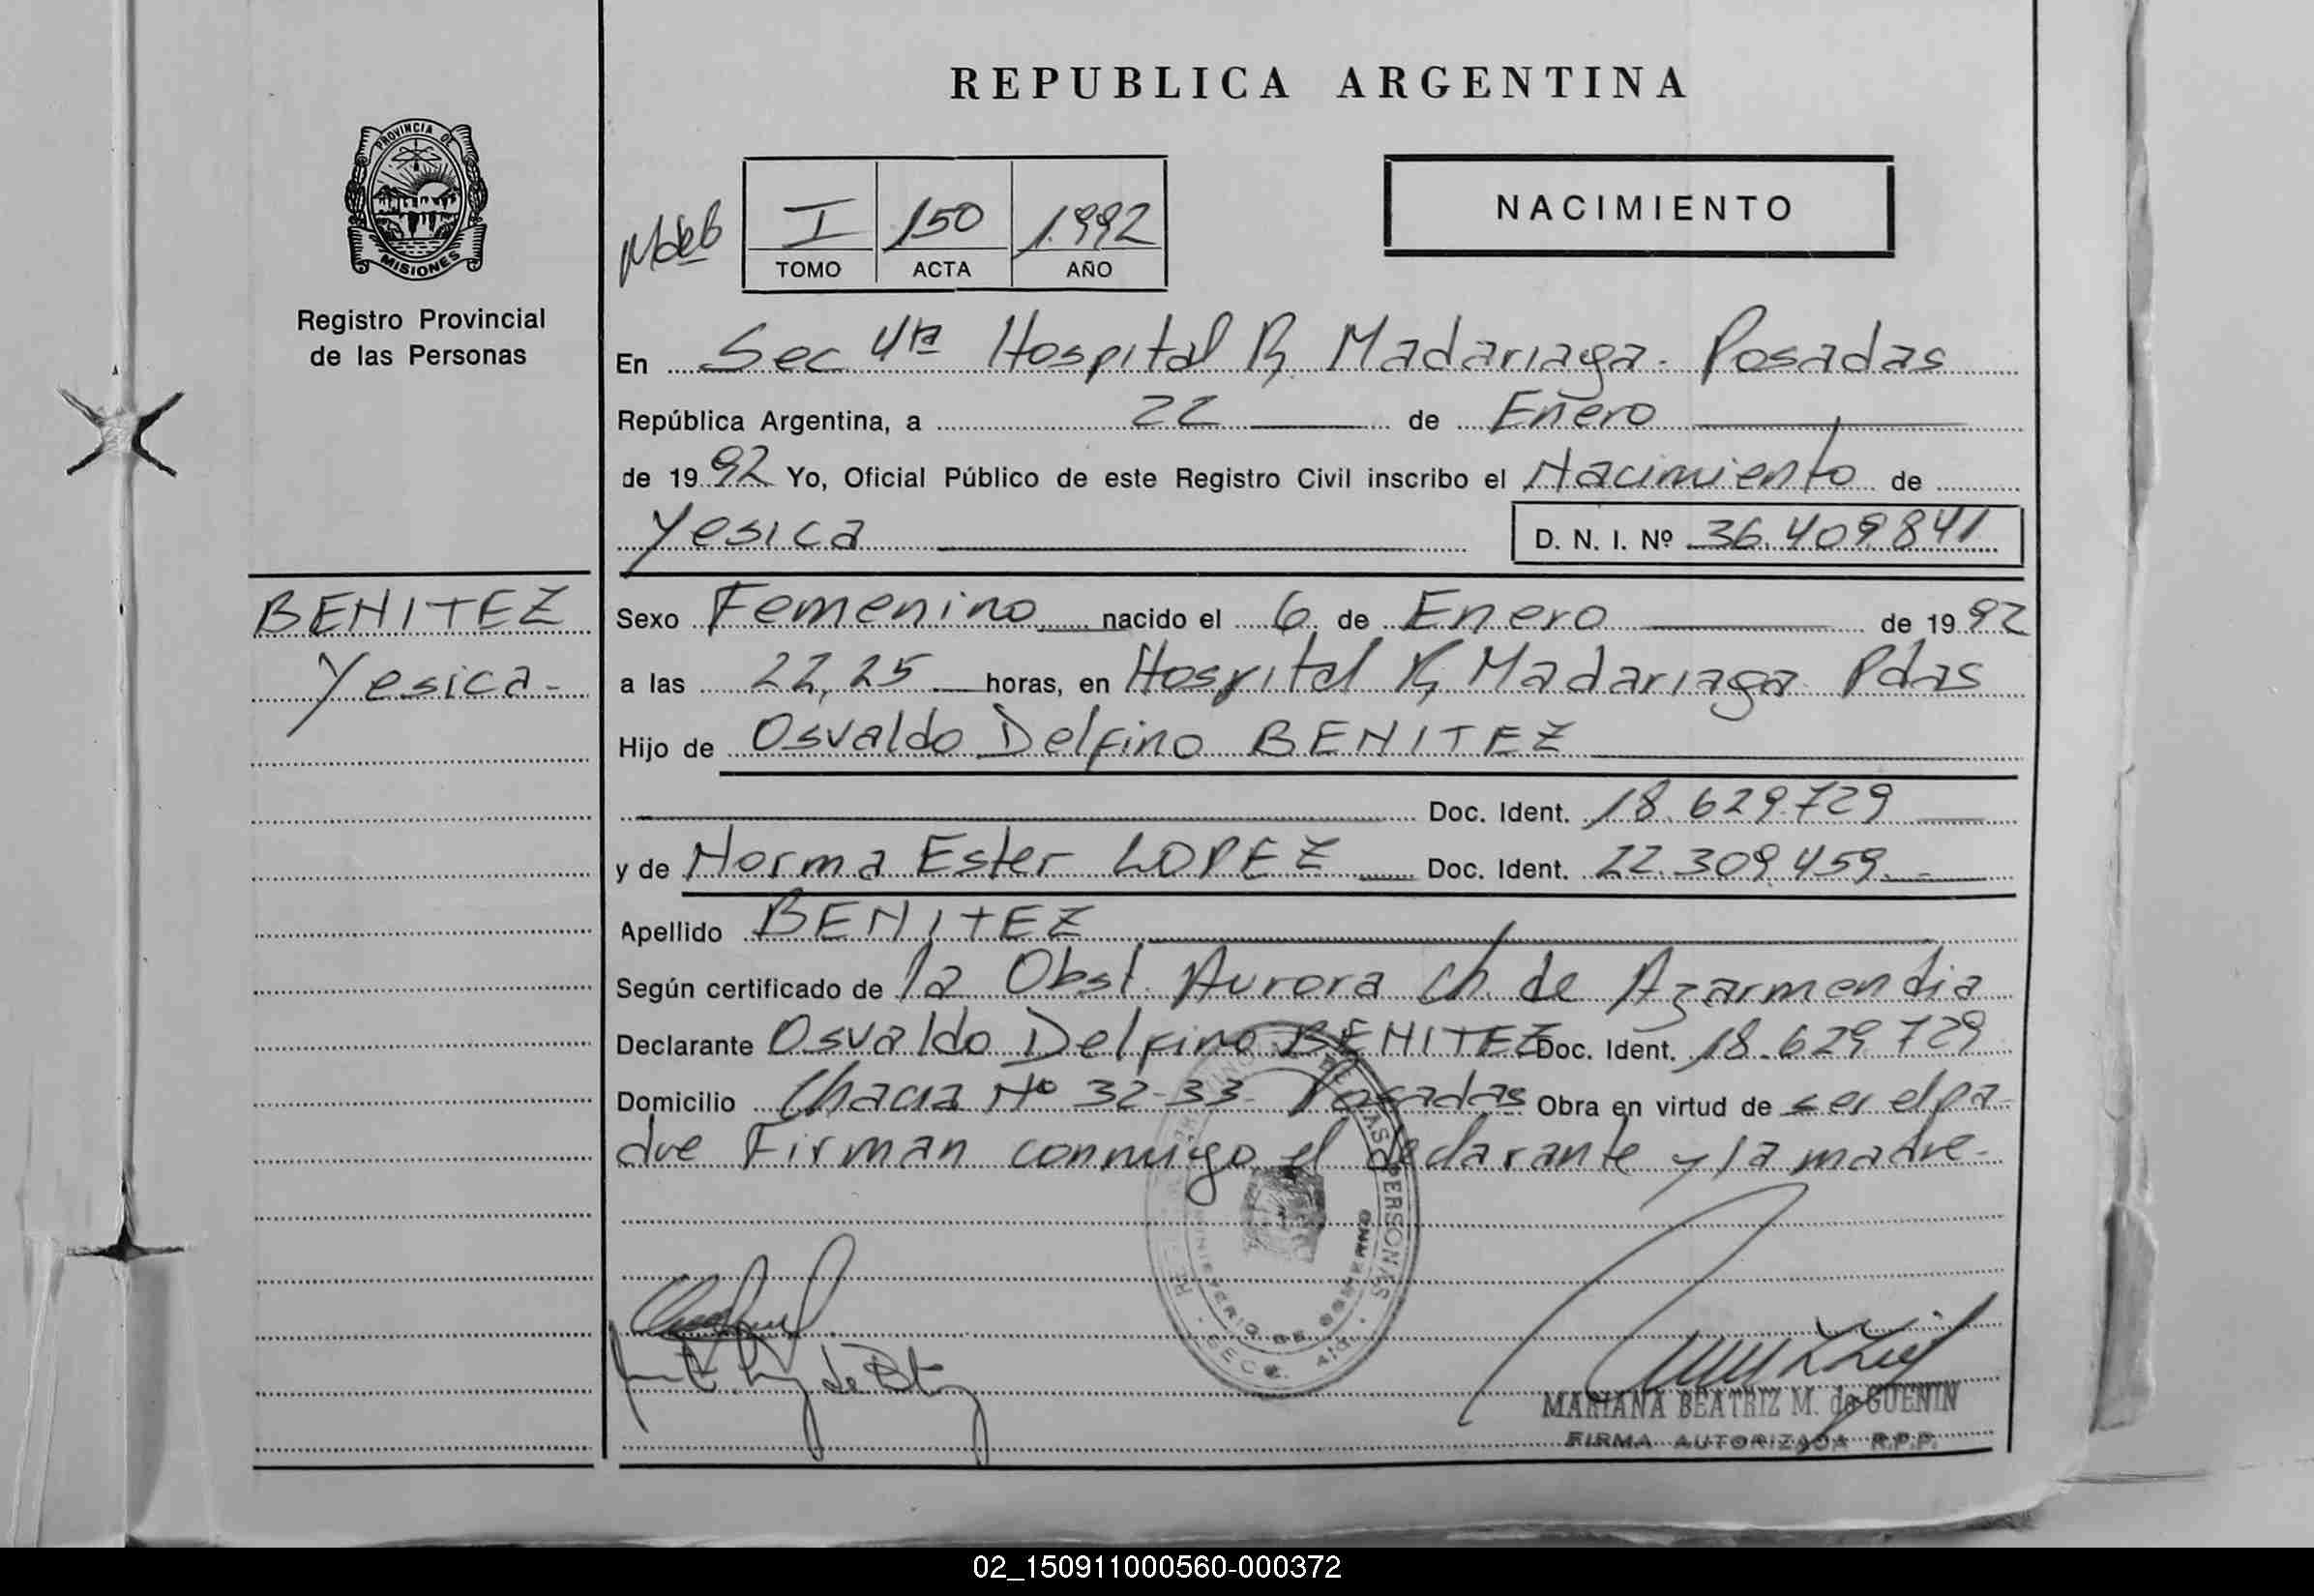 REPUBLICA ARGENTINA
PROVINCIA DE
MISIONES
Registro Provincial
de las Personas
I 150 1.992
TOMO ACTA AÑO
NACIMIENTO
En Sec 4ta Hospital R, Madariaga - Posadas
República Argentina, a 22 de Enero
de 1992 Yo, Oficial Público de este Registro Civil inscribo el Nacimiento de
Yesica D. N. I. Nº 36.409841
BENITEZ
Yesica-
Sexo Femenino nacido el 6 de Enero de 1992
a las 22,25 horas, en Hospital R, Madariaga Pdas
Hijo de Osvaldo Delfino BENITEZ
Doc. Ident. 18.629.729
y de Norma Ester LOPEZ Doc. Ident. 22.309.459.-
Apellido BENITEZ
Según certificado de la Obst. Aurora Ch. de Azarmendia
Declarante Osvaldo Delfino BENITEZ Doc. Ident. 18.629.729
Domicilio Chacra Nº 32-33- Posadas Obra en virtud de ser el pa-
dre Firman conmigo el declarante y la madre-
DE LAS PERSONAS
MINISTERIO DE GOBIERNO
MARIANA BEATRIZ M. de GUENIN
FIRMA AUTORIZADA R.P.P.
02_150911000560-000372